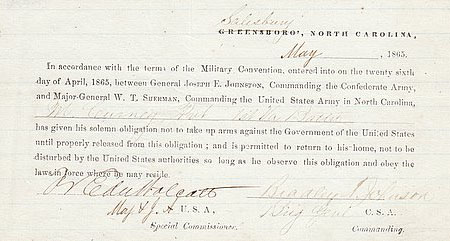 Salisbury
GREENSBORO', NORTH CAROLINA,
May , 1865.
In accordance with the terms of the Military Convention, entered into on the twenty sixth
day of April, 1865, between General JOSEPH E. JOHNSTON, Commanding the Confederate Army,
and Major-General W. T. SHERMAN, Commanding the United States Army in North Carolina,
has given his solemn obligation not to take up arms against the Government of the United States
until properly released from this obligation ; and is permitted to return to his home, not to be
disturbed by the United States authorities so long as he observe this obligation and obey the
laws in force where he may reside.
Bradley T Johnson
Maj & J. A U. S. A., Brig Genl C. S. A.
Special Commissioner. Commanding.